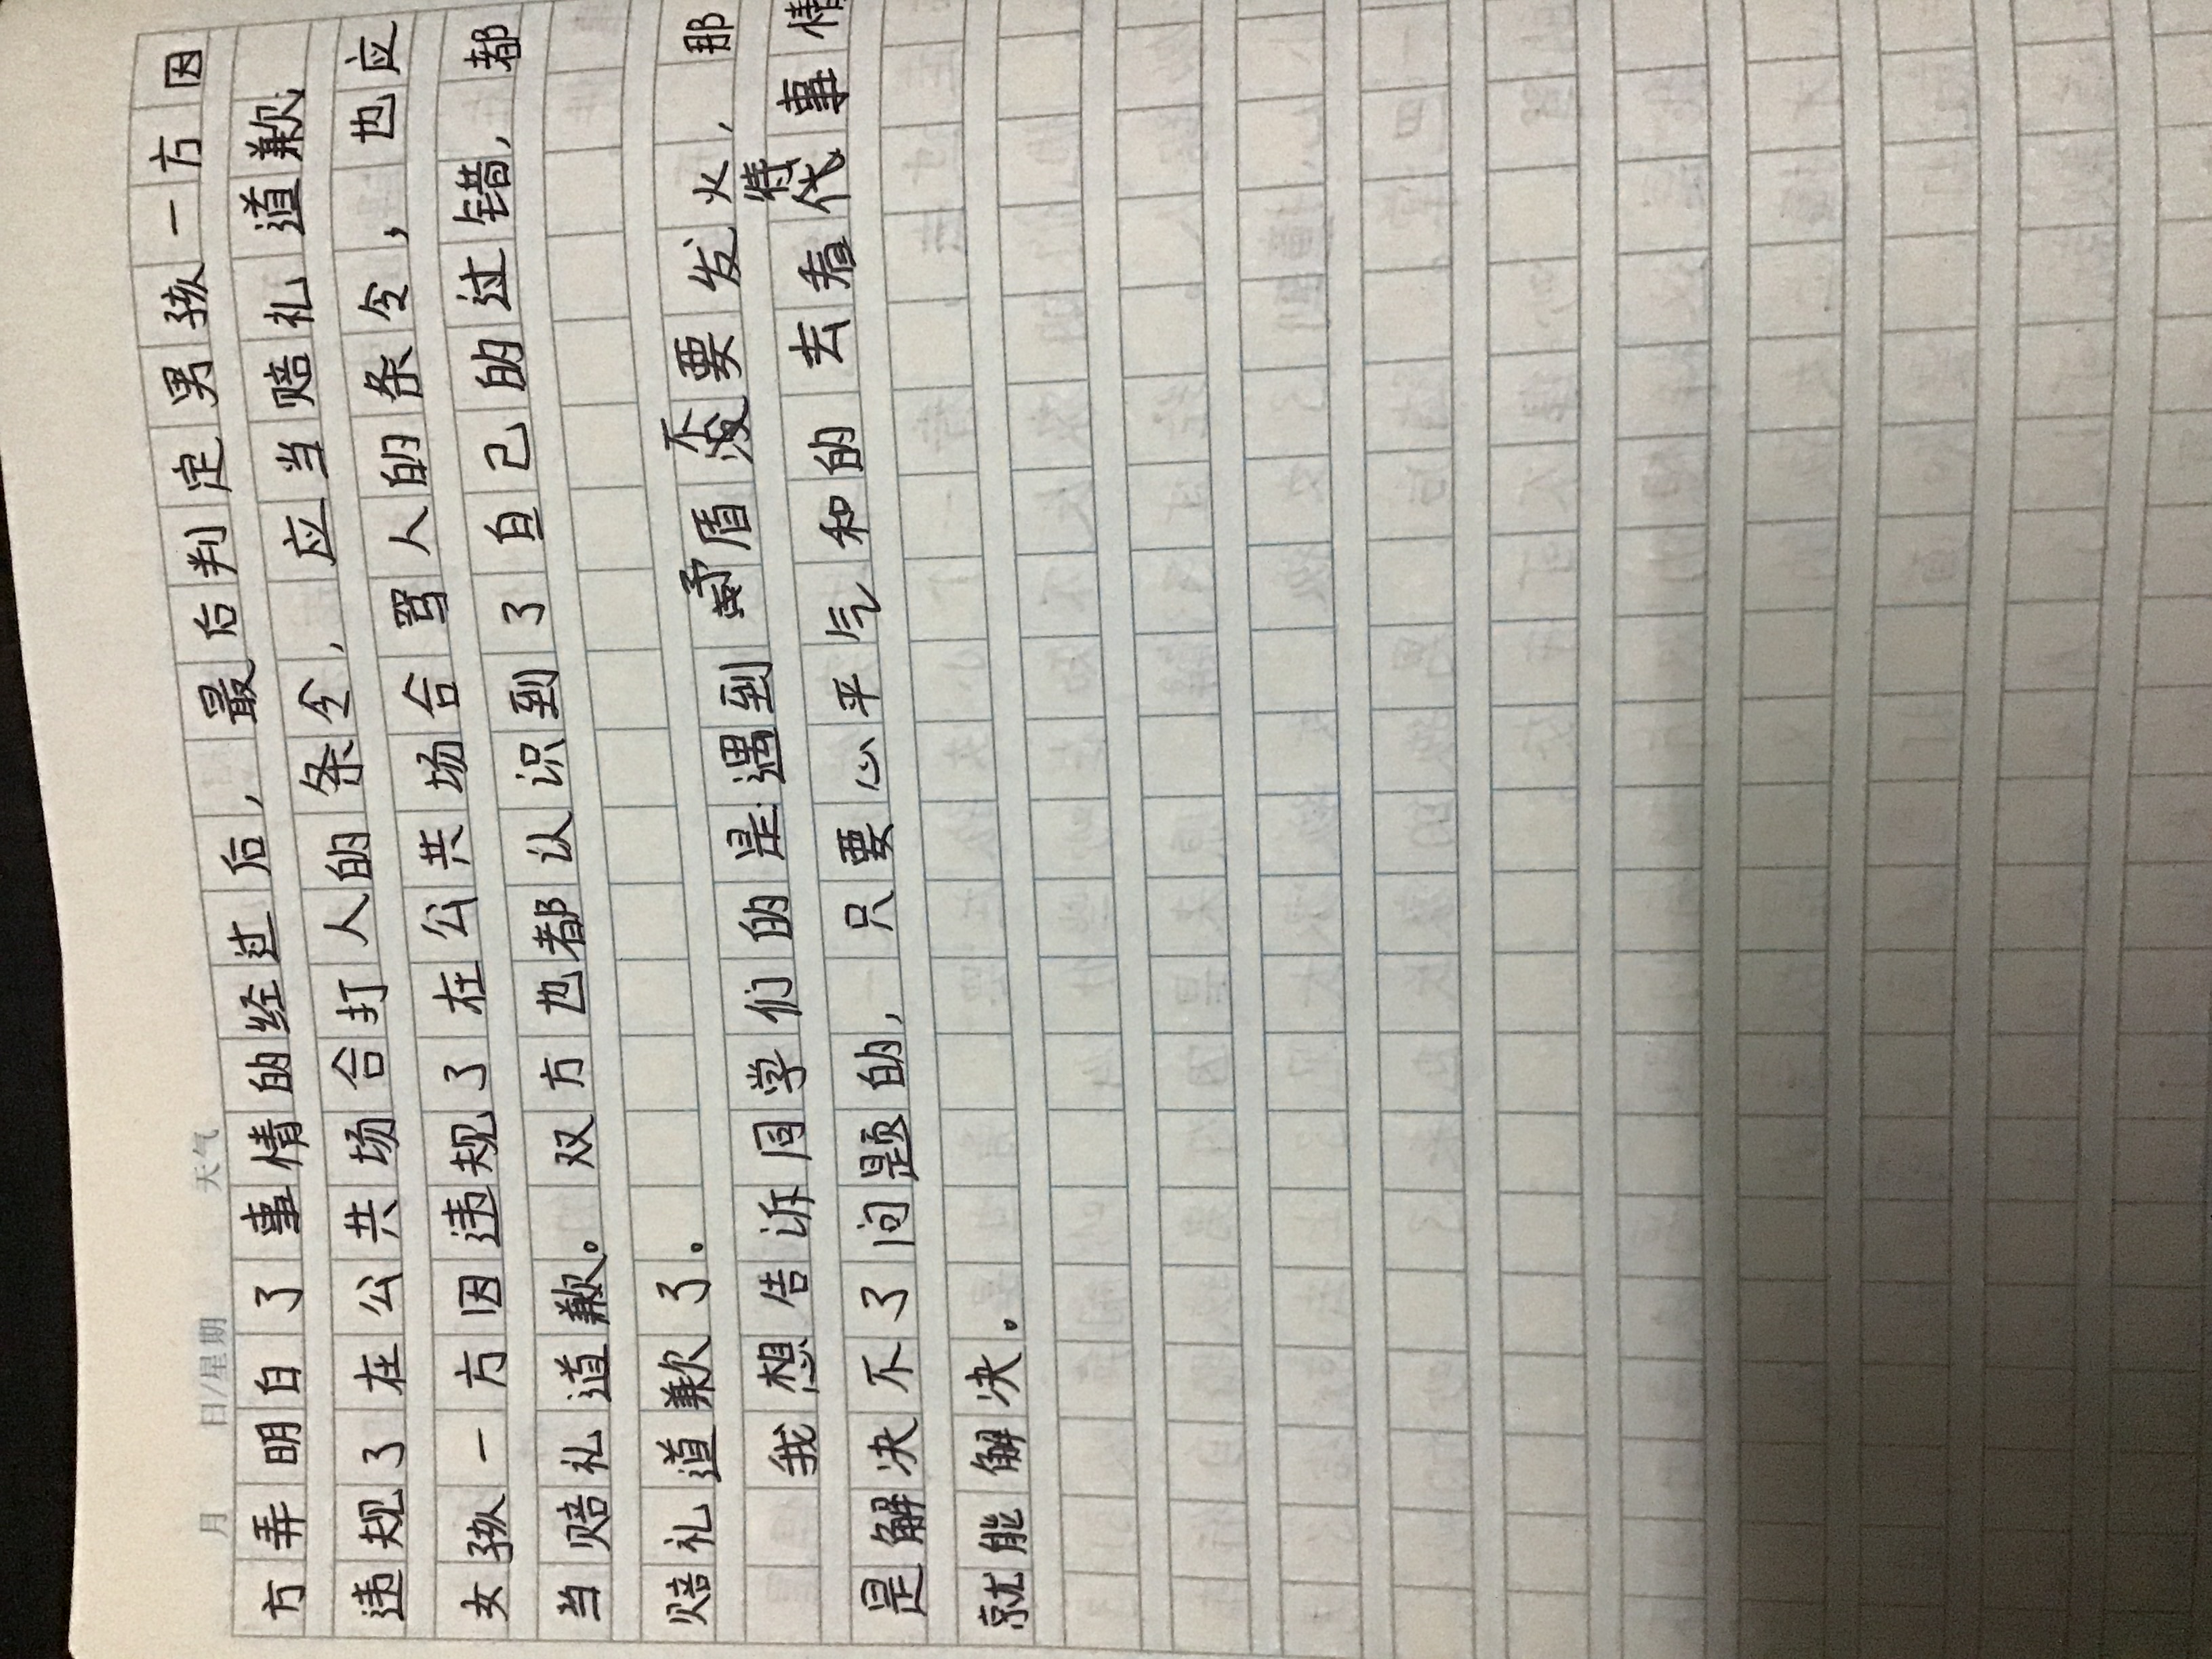 月 日/星期 天气
方弄明白了事情的经过后，最后判定男孩一方因
违规了在公共场合打人的条令，应当赔礼道歉
女孩一方因违规了在公共场合骂人的条令，也应
当赔礼道歉。双方也都认识到了自己的过错，都
赔礼道歉了。
我想告诉同学们的是遇到矛盾不要发火，那
是解决不了问题的，只要心平气和的去看待事情
就能解决。